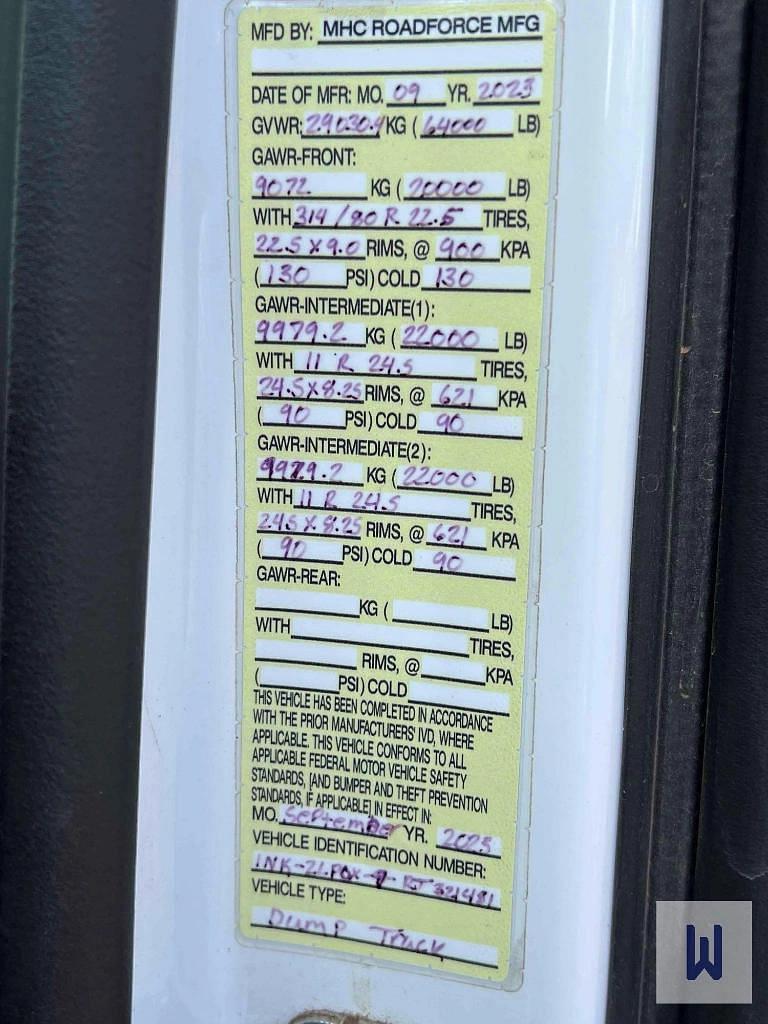 MFD BY: MHC ROADFORCE MFG
DATE OF MFR: MO. 09 YR. 2023
GVWR: 29030.4 KG ( 64000 LB)
GAWR-FRONT:
9072 KG ( 20000 LB)
WITH 314/80 R 22.5 TIRES,
22.5 X 9.0 RIMS, @ 900 KPA
( 130 PSI) COLD 130
GAWR-INTERMEDIATE(1):
9979.2 KG ( 22000 LB)
WITH 11 R 24.5 TIRES,
24.5 X 8.25 RIMS, @ 621 KPA
( 90 PSI) COLD 90
GAWR-INTERMEDIATE(2):
9979.2 KG ( 22000 LB)
WITH 11 R 24.5 TIRES,
24.5 X 8.25 RIMS, @ 621 KPA
( 90 PSI) COLD 90
GAWR-REAR:
KG ( LB)
WITH TIRES,
RIMS, @ KPA
( PSI) COLD
THIS VEHICLE HAS BEEN COMPLETED IN ACCORDANCE
WITH THE PRIOR MANUFACTURERS' IVD, WHERE
APPLICABLE. THIS VEHICLE CONFORMS TO ALL
APPLICABLE FEDERAL MOTOR VEHICLE SAFETY
STANDARDS, [AND BUMPER AND THEFT PREVENTION
STANDARDS, IF APPLICABLE] IN EFFECT IN:
MO. September YR. 2023
VEHICLE IDENTIFICATION NUMBER:
VEHICLE TYPE:
Dump Truck
W